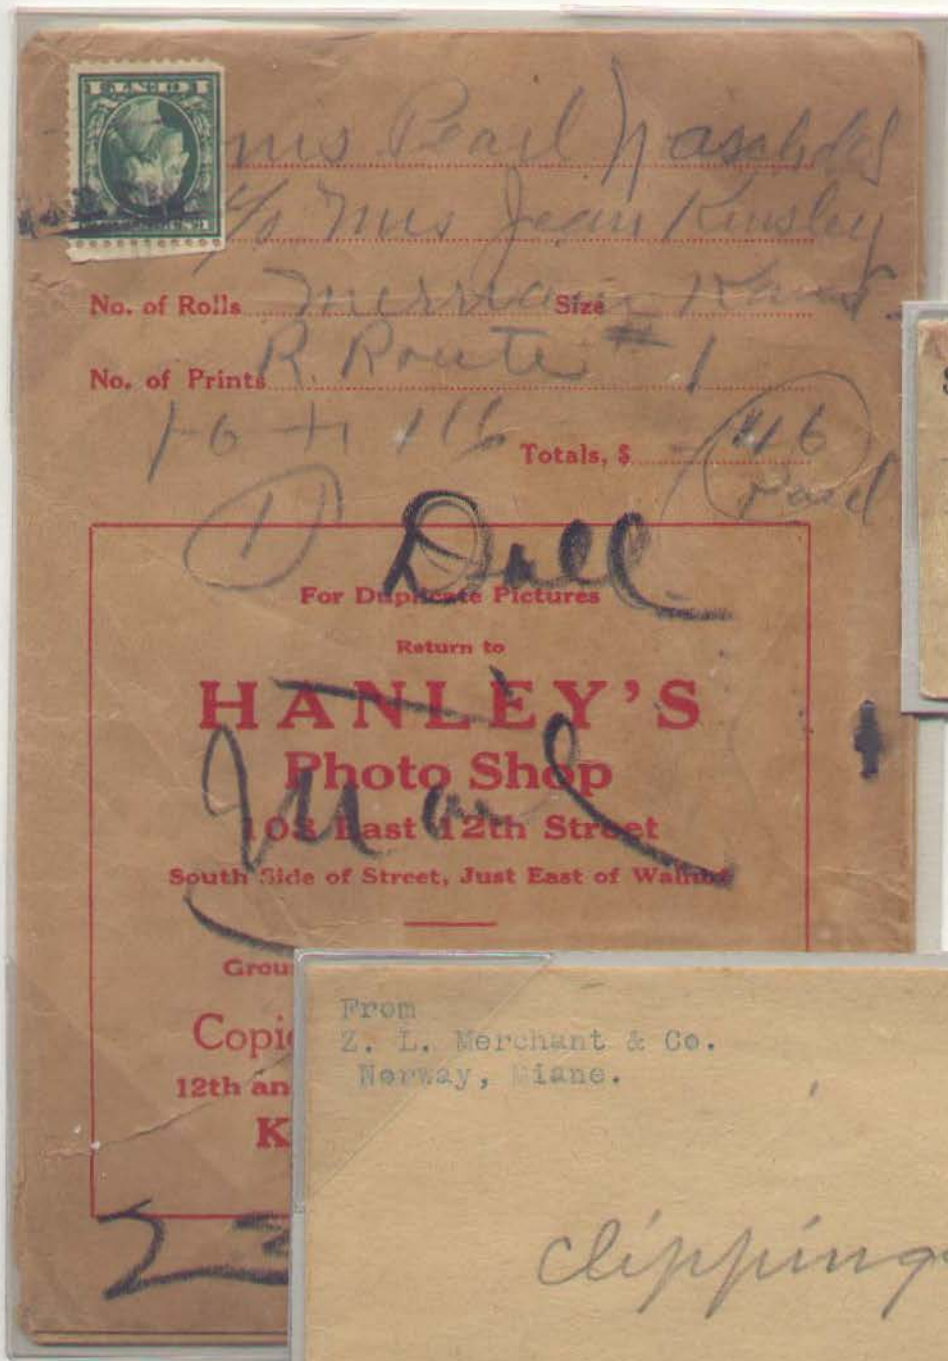 1 CENT 1
Mrs Pearl
c/o Mrs Jean Kinsley
No. of Rolls Merriam Size Kans.
No. of Prints R. Route # 1
Totals, $ 46
Paid
1
Dull
For Duplicate Pictures
Return to
HANLEY'S
Photo Shop
Mail
East 12th Street
South Side of Street, Just East of Walnut
Grou
Copie
12th an
K
23
From
Z. L. Merchant & Co.
Norway, Miane.
Clipping